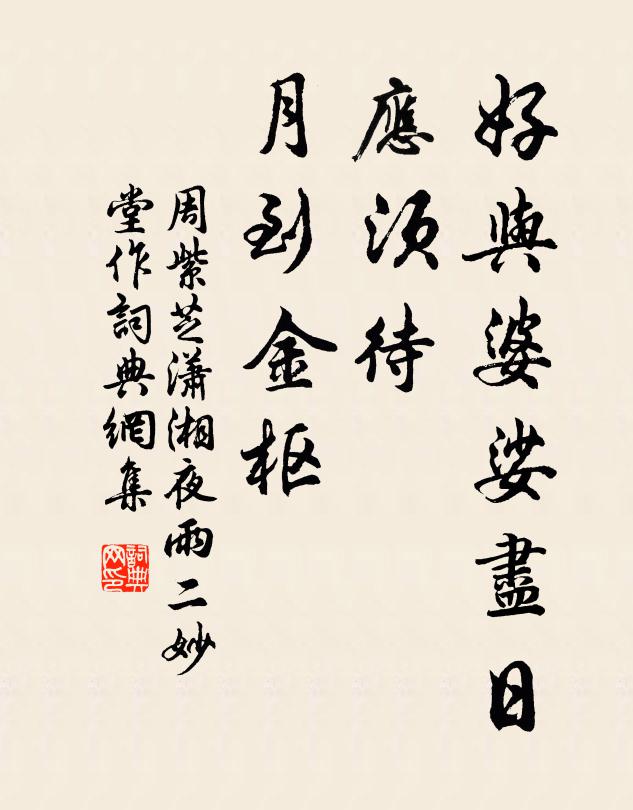 好與婆娑盡日
應須待
月到金枢
周紫芝瀟湘夜雨二妙
堂作詞典網集
詞典网印